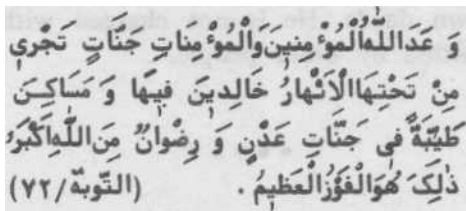 وَ عَدَاللّٰهُالْمُؤْمِنینَوَالْمُؤْمِناتِ جَنّٰاتٍ تَجْری
مِنْ تَحْتِهَاالْاَنْهٰارُ خٰالِدینَ فیهٰا وَ مَسٰاکِـنَ
طَیِّبَةً فی جَنّٰاتِ عَدْنٍ وَ رِضْوانٌ مِنَاللّٰهِاَکْبَرُ
ذٰلِکَ هُوَالْفَوْزُالْعَظیمُ . (التّوبة/۷۲)